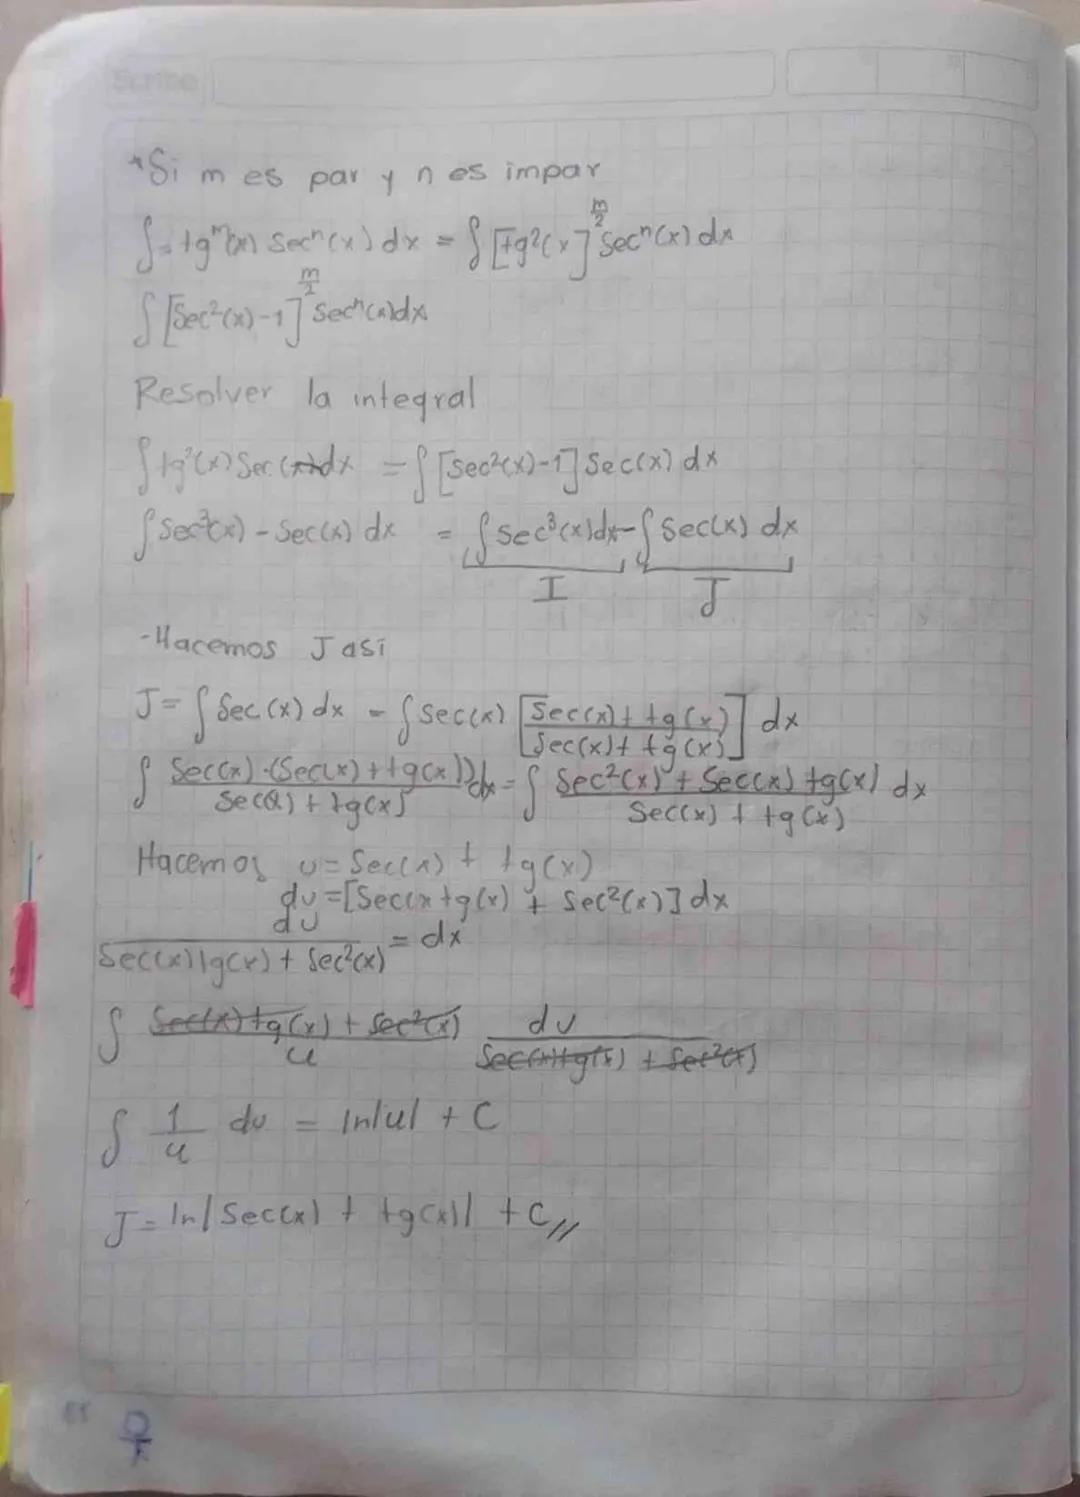 Scribe
*Si m es par y n es impar
∫ tg^m(x) Sec^n(x) dx = ∫ [tg²(x]^(m/2) Sec^n(x) dx
∫ [Sec²(x)-1]^(m/2) Sec^n(x)dx
Resolver la integral
∫ tg²(x) Sec(x)dx = ∫ [Sec²(x)-1] Sec(x) dx
∫ Sec³(x) - Sec(x) dx = ∫ Sec³(x)dx - ∫ Sec(x) dx
I J
-Hacemos J asi
J = ∫ Sec(x) dx = ∫ Sec(x) [Sec(x) + tg(x) / Sec(x) + tg(x)] dx
∫ Sec(x) · (Sec(x) + tg(x)) / Sec(x) + tg(x) dx = ∫ Sec²(x) + Sec(x) tg(x) / Sec(x) + tg(x) dx
Hacemos u = Sec(x) + tg(x)
du = [Sec(x tg(x) + Sec²(x)] dx
du / Sec(x) tg(x) + Sec²(x) = dx
∫ Sec(x) tg(x) + Sec²(x) / u du / Sec(x) tg(x) + Sec²(x)
∫ 1/u du = ln|u| + C
J = ln|Sec(x) + tg(x)| + C //